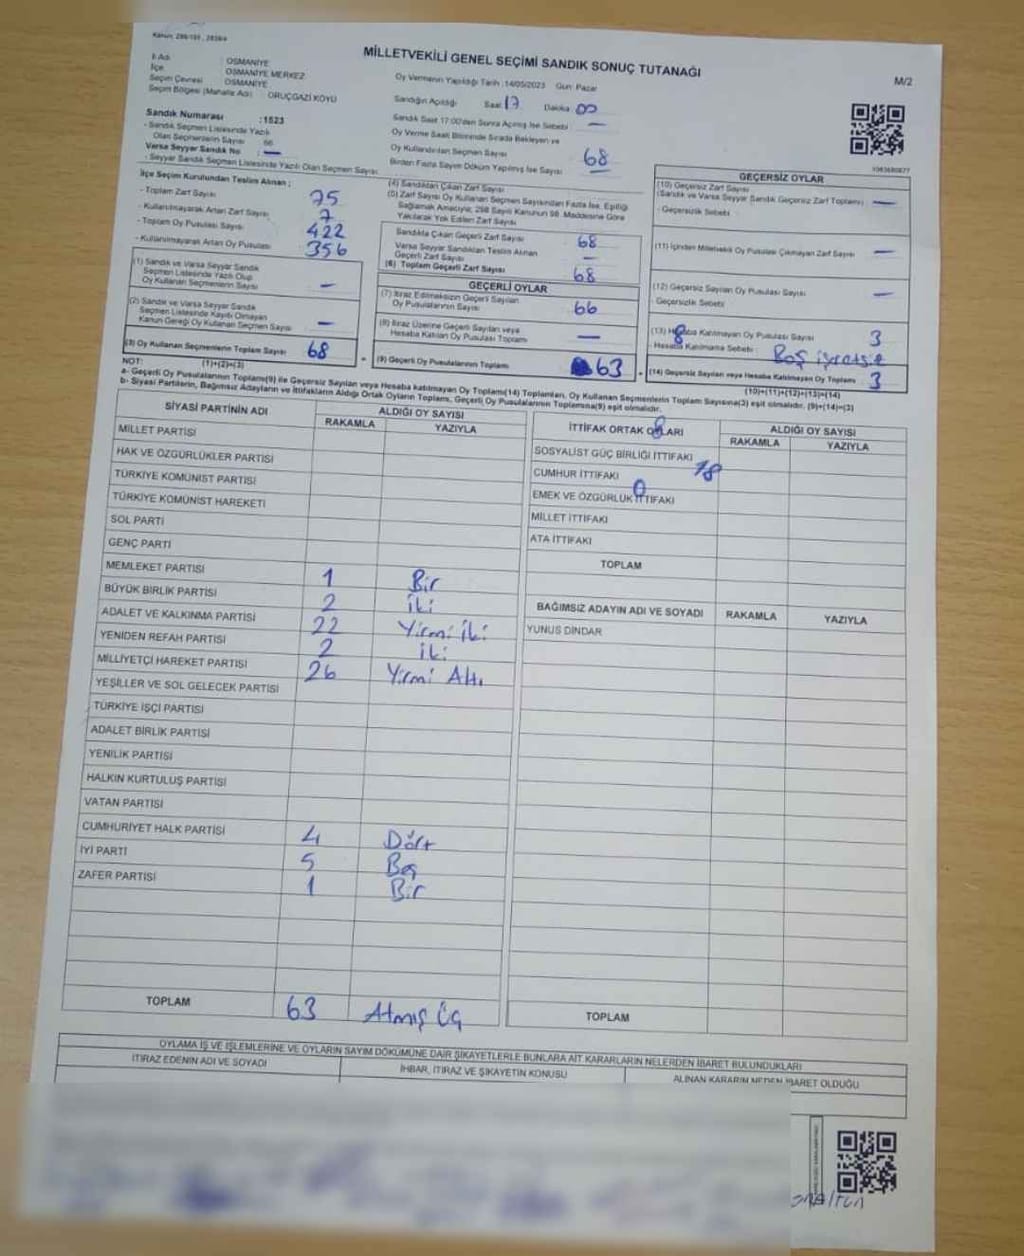 MİLLETVEKİLİ GENEL SEÇİMİ SANDIK SONUÇ TUTANAĞI
M/2
İl Adı : OSMANİYE
İlçe : OSMANİYE MERKEZ
Seçim Çevresi : OSMANİYE
Seçim Bölgesi (Mahalle Adı) : ORUÇGAZİ KÖYÜ
Oy Vermenin Yapıldığı Tarih : 14/05/2023 Gün: Pazar
Sandığın Açıldığı Saat 17 Dakika 00
Sandık Saat 17:00'den Sonra Açılmış İse Sebebi —
Oy Verme Saati Bitiminde Sırada Bekleyen ve
Oy Kullandırılan Seçmen Sayısı 68
Birden Fazla Sayım Döküm Yapılmış İse Sayısı —
Sandık Numarası :1523
- Sandık Seçmen Listesinde Yazılı
Olan Seçmenlerin Sayısı 66
Varsa Seyyar Sandık No : —
- Seyyar Sandık Seçmen Listesinde Yazılı Olan Seçmen Sayısı
İlçe Seçim Kurulundan Teslim Alınan :
- Toplam Zarf Sayısı 75
- Kullanılmayarak Artan Zarf Sayısı 7
- Toplam Oy Pusulası Sayısı 422
- Kullanılmayarak Artan Oy Pusulası 356
(1) Sandık ve Varsa Seyyar Sandık
Seçmen Listesinde Yazılı Olup
Oy Kullanan Seçmenlerin Sayısı —
(2) Sandık ve Varsa Seyyar Sandık
Seçmen Listesinde Kayıtlı Olmayan
Kanun Gereği Oy Kullanan Seçmen Sayısı —
(3) Oy Kullanan Seçmenlerin Toplam Sayısı 68
(1)+(2)=(3)
(4) Sandıktan Çıkan Zarf Sayısı
(5) Zarf Sayısı Oy Kullanan Seçmen Sayısından Fazla İse, Eşitliği
Sağlamak Amacıyla, 298 Sayılı Kanunun 98. Maddesine Göre
Yakılarak Yok Edilen Zarf Sayısı
Sandıkta Çıkan Geçerli Zarf Sayısı 68
Varsa Seyyar Sandıktan Teslim Alınan
Geçerli Zarf Sayısı —
(6) Toplam Geçerli Zarf Sayısı 68
GEÇERLİ OYLAR
(7) İtiraz Edilmeksizin Geçerli Sayılan
Oy Pusulalarının Sayısı 66
(8) İtiraz Üzerine Geçerli Sayılan veya
Hesaba Katılan Oy Pusulası Toplamı —
(9) Geçerli Oy Pusulalarının Toplamı 63
GEÇERSİZ OYLAR
(10) Geçersiz Zarf Sayısı
(Sandık ve Varsa Seyyar Sandık Geçersiz Zarf Toplamı) —
- Geçersizlik Sebebi
(11) İçinden Milletvekili Oy Pusulası Çıkmayan Zarf Sayısı —
(12) Geçersiz Sayılan Oy Pusulası Sayısı —
- Geçersizlik Sebebi
(13) Hesaba Katılmayan Oy Pusulası Sayısı 3
- Hesaba Katılmama Sebebi : Boş
(14) Geçersiz Sayılan veya Hesaba Katılmayan Oy Toplamı 3
(10)+(11)+(12)+(13)=(14)
NOT:
a- Geçerli Oy Pusulaları Toplamı(9) ile Geçersiz Sayılan veya Hesaba katılmayan Oy Toplamı(14) Toplamları, Oy Kullanan Seçmenlerin Toplam Sayısına(3) eşit olmalıdır. (9)+(14)=(3)
b- Siyasi Partilerin, Bağımsız Adayların ve İttifakların Aldığı Ortak Oyların Toplamı, Geçerli Oy Pusulalarının Toplamına(9) eşit olmalıdır.
SİYASİ PARTİNİN ADI ALDIĞI OY SAYISI
RAKAMLA YAZIYLA
MİLLET PARTİSİ
HAK VE ÖZGÜRLÜKLER PARTİSİ
TÜRKİYE KOMÜNİST PARTİSİ
TÜRKİYE KOMÜNİST HAREKETİ
SOL PARTİ
GENÇ PARTİ
MEMLEKET PARTİSİ 1 Bir
BÜYÜK BİRLİK PARTİSİ 2 İki
ADALET VE KALKINMA PARTİSİ 22 Yirmi İki
YENİDEN REFAH PARTİSİ 2 İki
MİLLİYETÇİ HAREKET PARTİSİ 26 Yirmi Altı
YEŞİLLER VE SOL GELECEK PARTİSİ
TÜRKİYE İŞÇİ PARTİSİ
ADALET BİRLİK PARTİSİ
YENİLİK PARTİSİ
HALKIN KURTULUŞ PARTİSİ
VATAN PARTİSİ
CUMHURİYET HALK PARTİSİ 4 Dört
İYİ PARTİ 5 Beş
ZAFER PARTİSİ 1 Bir
TOPLAM 63 Atmış Üç
İTTİFAK ORTAK OYLARI ALDIĞI OY SAYISI
RAKAMLA YAZIYLA
SOSYALİST GÜÇ BİRLİĞİ İTTİFAKI
CUMHUR İTTİFAKI 18
EMEK VE ÖZGÜRLÜK İTTİFAKI
MİLLET İTTİFAKI
ATA İTTİFAKI
TOPLAM
BAĞIMSIZ ADAYIN ADI VE SOYADI RAKAMLA YAZIYLA
YUNUS DİNDAR
TOPLAM
OYLAMA İŞ VE İŞLEMLERİNE VE OYLARIN SAYIM DÖKÜMÜNE DAİR ŞİKAYETLERLE BUNLARA AİT KARARLARIN NELERDEN İBARET BULUNDUKLARI
İTİRAZ EDENİN ADI VE SOYADI İHBAR, İTİRAZ VE ŞİKAYETİN KONUSU ALINAN KARARIN NEDEN İBARET OLDUĞU